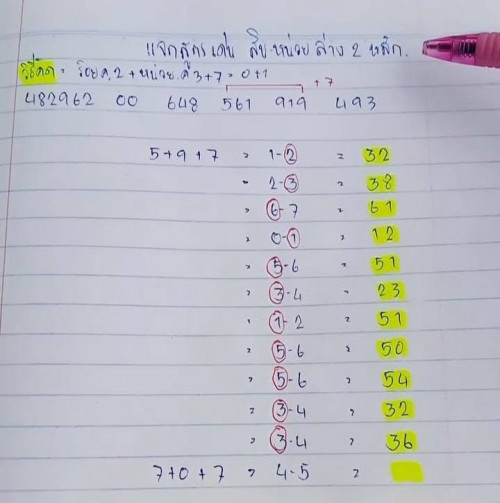 แจกสูตรเด่น สิบ-หน่วย ล่าง 2 หลัก.
วิธีคิด = ร้อย.ต.2 + หน่วย.ที่3+7 = 0+1
+7
482962 00 648 561 919 493
5+9+7 = 1-2 = 32
= 2-3 = 38
= 6-7 = 61
= 0-1 = 12
= 5-6 = 51
= 3-4 = 23
= 1-2 = 51
= 5-6 = 50
= 5-6 = 54
= 3-4 = 32
= 3-4 = 36
7+0+7 = 4-5 =